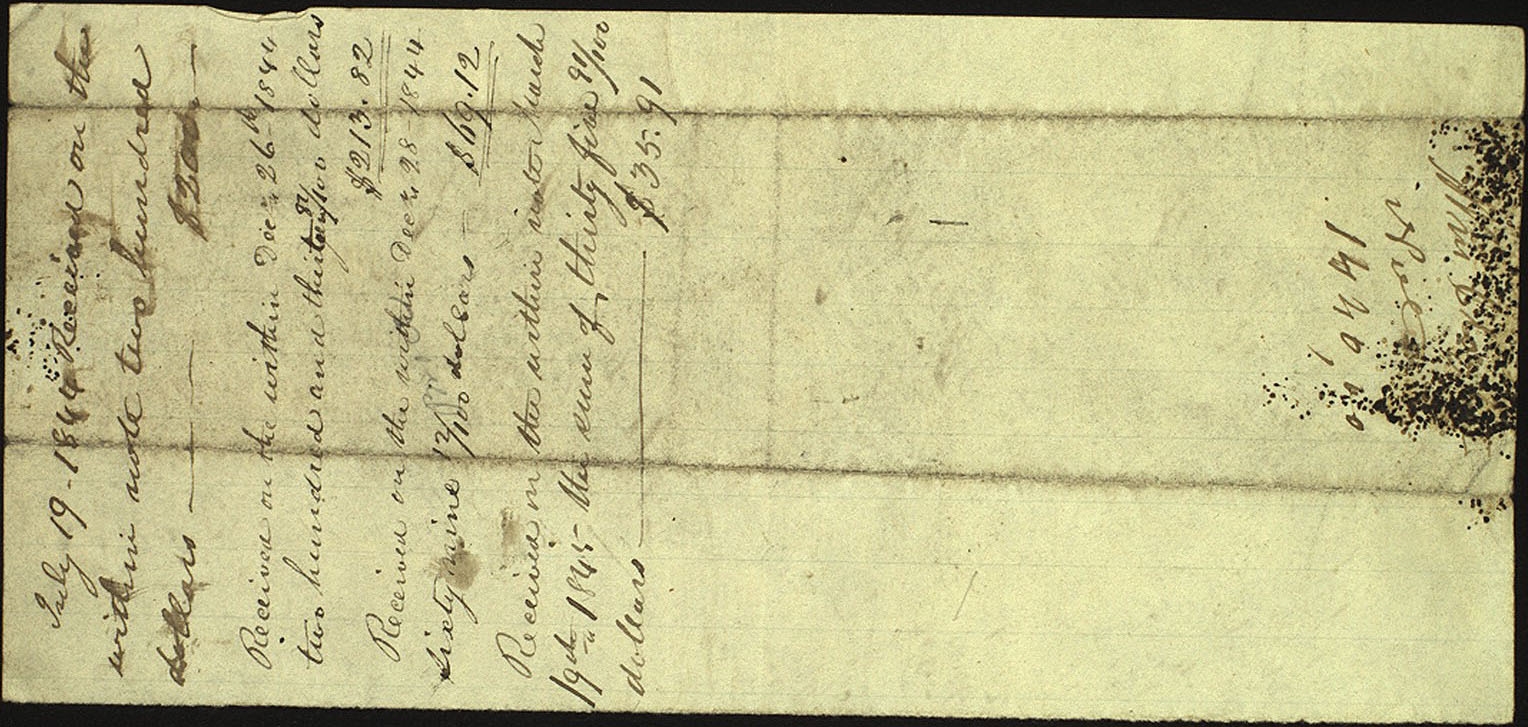 July 19 - 1844 Received on the
within note two hundred
dollars $200
Received on the within Decr. 26th 1844
two hundred and thirteen 82/100 dollars
$213.82
Received on the within Decr. 28 - 1844
sixty nine 12/100 dollars
$69.12
Received on the within note March
19th 1845 the sum of thirty five 91/100
dollars $35.91
Note